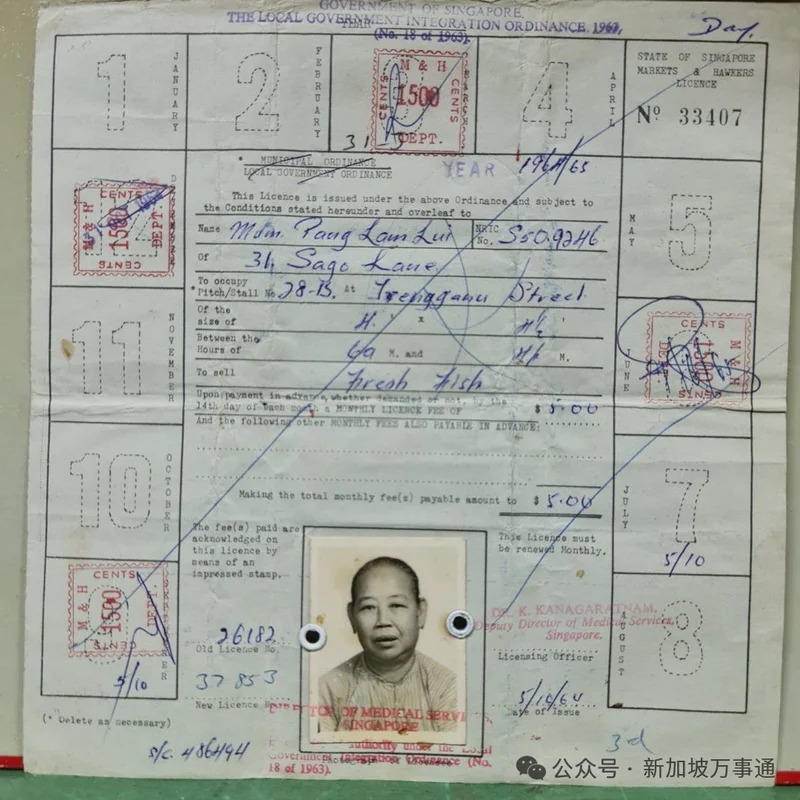 GOVERNMENT OF SINGAPORE.
THE LOCAL GOVERNMENT INTEGRATION ORDINANCE. 1963.
(No. 18 of 1963).
Day.
1 JANUARY
2 FEBRUARY
M & H
CENTS 1500 CENTS
DEPT.
MARCH
31-3
4 APRIL
STATE OF SINGAPORE
MARKETS & HAWKERS
LICENCE
Nº 33407
* MUNICIPAL ORDINANCE
LOCAL GOVERNMENT ORDINANCE
YEAR 1964/65
This Licence is issued under the above Ordinance and subject to
the Conditions stated hereunder and overleaf to
Name Mdm. Pang Lam Lui NRIC No. S509246
Of 31, Sago Lane
To occupy
* Pitch/Stall No. 28-B. At Trengganu Street
Of the
size of 4' x 4½'
Between the
Hours of 6a M. and M.
To sell Fresh Fish
Upon payment in advance, whether demanded or not, by the
14th day of each month a MONTHLY LICENCE FEE OF $ 5.00
And the following other MONTHLY FEES ALSO PAYABLE IN ADVANCE:
Making the total monthly fee(s) payable amount to $ 5.00
CENTS
M & H 1500 DEPT.
CENTS
5 MAY
11 NOVEMBER
CENTS
1500 M & H
CENTS
JUNE
10 OCTOBER
7 JULY
5/10
CENTS
M & H 1500 DEPT.
CENTS
5/10
8 AUGUST
The fee(s) paid are
acknowledged on
this licence by
means of an
impressed stamp.
This Licence must
be renewed Monthly.
26182
Old Licence No.
37853
New Licence No.
DR. K. KANAGARATNAM,
Deputy Director of Medical Services,
Singapore.
Licensing Officer
5/10/64
Date of Issue
(* Delete as necessary)
DIRECTOR OF MEDICAL SERVICES,
SINGAPORE
authority under the Local
Government Integration Ordinance (No.
18 of 1963).
Photograph of Licensee
S/C. 486494
3rd
公众号 · 新加坡万事通